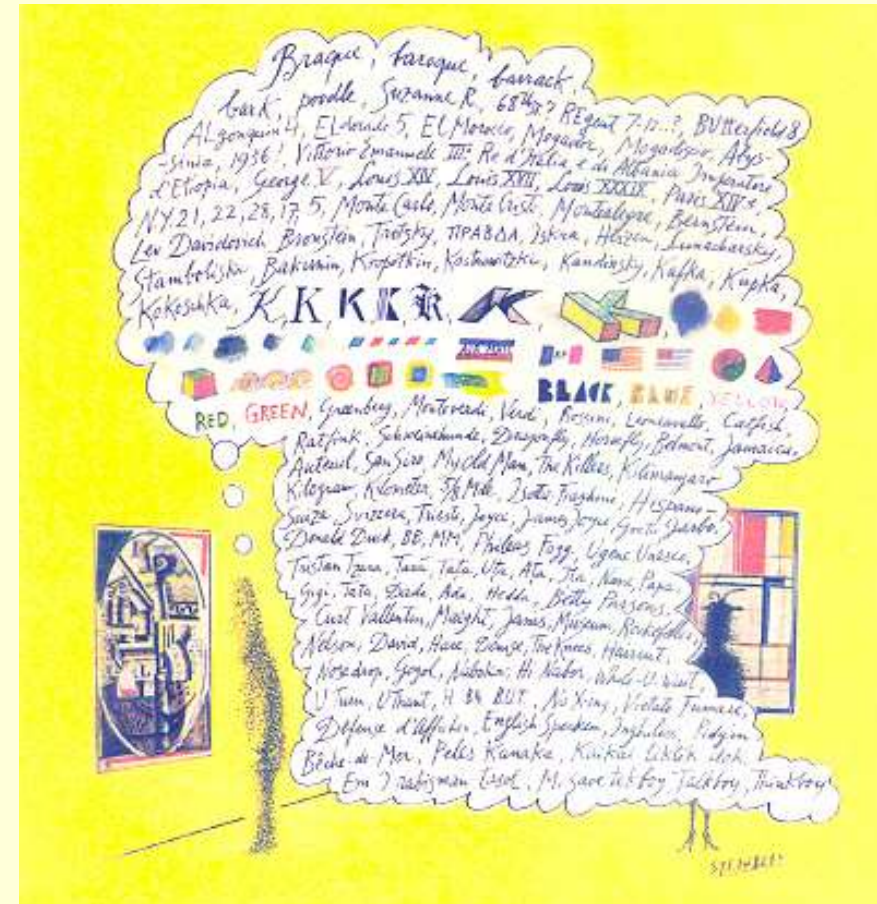 Braque, baroque, barrack,
bark, poodle, Suzanne R., 68th St? REgent 7-12..?, BUtterfield 8,
ALgonquin 4, ELdorado 5, El Morocco, Mogador, Mogadiscio, Abys-
-sinia, 1936!, Vittorio Emanuele III: Re d'Italia e di Albania Imperatore
d'Etiopia, George V, Louis XIV, Louis XVII, Louis XXXIX, Paris XIVe,
N.Y. 21, 22, 28, 17, 5, Monte Carlo, Monte Cristo, Montealegre, Bernstein,
Lev Davidovich Bronstein, Trotzky, ПРАВДА, Iskra, Herzen, Lunacharsky,
Stambolisky, Bakunin, Kropotkin, Kostrowitzky, Kandinsky, Kafka, Kupka,
Kokoschka, K, K, K, K, K, K,
BLACK, BLUE, YELLOW
RED, GREEN, Greenberg, Monteverdi, Verdi, Rossini, Leoncavallo, Catfish,
Ratfink, Schweinehunde, Dragonfly, Horsefly, Belmont, Jamaica,
Auteuil, San Siro, My Old Man, The Killers, Kilimanjaro
Kilogram, Kilometer, 5/8 Mile, Isotta Fraschini, Hispano-
Suiza, Svizzera, Trieste, Joyce, James Joyce, Greta Garbo,
Donald Duck, BB, MM, Phileas Fogg, Ugene Unesco,
Tristan Tzara, Tara, Tata, Uta, Ata, Nana, Papa,
Gigi, Tata, Dada, Ada, Hedda, Betty Parsons,
Curt Valentin, Maeght, Janis, Museum, Rockefeller,
Nelson, David, Hare, Denise, The Knees, Haircut,
Nosedrop, Gogol, Nabokov, Hi Nabor, While-U-Wait,
U Turn, U Thant, H. B4, BUT, No X-ing, Vietato Fumare,
Défense d'Afficher, English Spoken, Pidgin
Bêche-de-Mer, Peles Kanaka, Kaikai
Em I M. save tokboy Talkboy, Thinkboy
STEINBERG